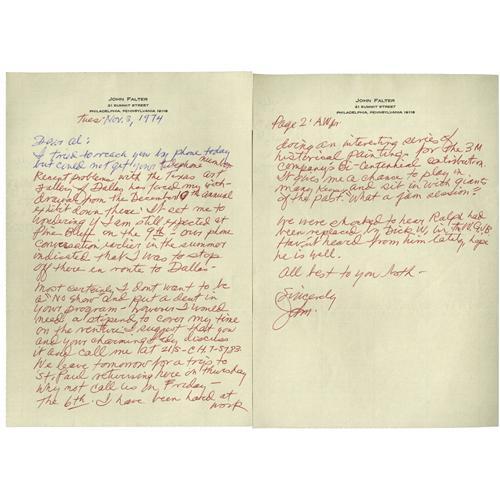 JOHN FALTER
21 SUMMIT STREET
PHILADELPHIA, PENNSYLVANIA 19118
Tues: Nov. 3, 1974
Dear Al:
I tried to reach you by phone today
but could not get your telephone number
Recent problems with the Texas Art
Gallery of Dallas has forced my with-
drawal from the December 10th annual
exhibit down there. It set me to
wondering if I am still expected at
Pine Bluff on the 9th - our phone
conversation earlier in the summer
indicated that I was to stop
off there en route to Dallas -
Most certainly I don't want to be
a "No Show" and put a dent in
your program - however I would
need a stipend to cover my time
on the venture. I suggest that you
and your charming lady discuss
it and call me at 215-CH.7-5783.
We leave tomorrow for a trip to
St. Paul returning here on Thursday
Why not call us on Friday -
the 6th. I have been hard at
work
JOHN FALTER
21 SUMMIT STREET
PHILADELPHIA, PENNSYLVANIA 19118
Page 2:
doing an interesting series of
historical paintings for the 3M
Company's Bi-Centennial contribution.
It gives me a chance to play in
many keys and sit in with giants
of the past. What a jam session!
We were shocked to hear Ralph had
been replaced by Dick W. in the
Haven't heard from him lately, hope
he is well.
All best to you both -
Sincerely
John.